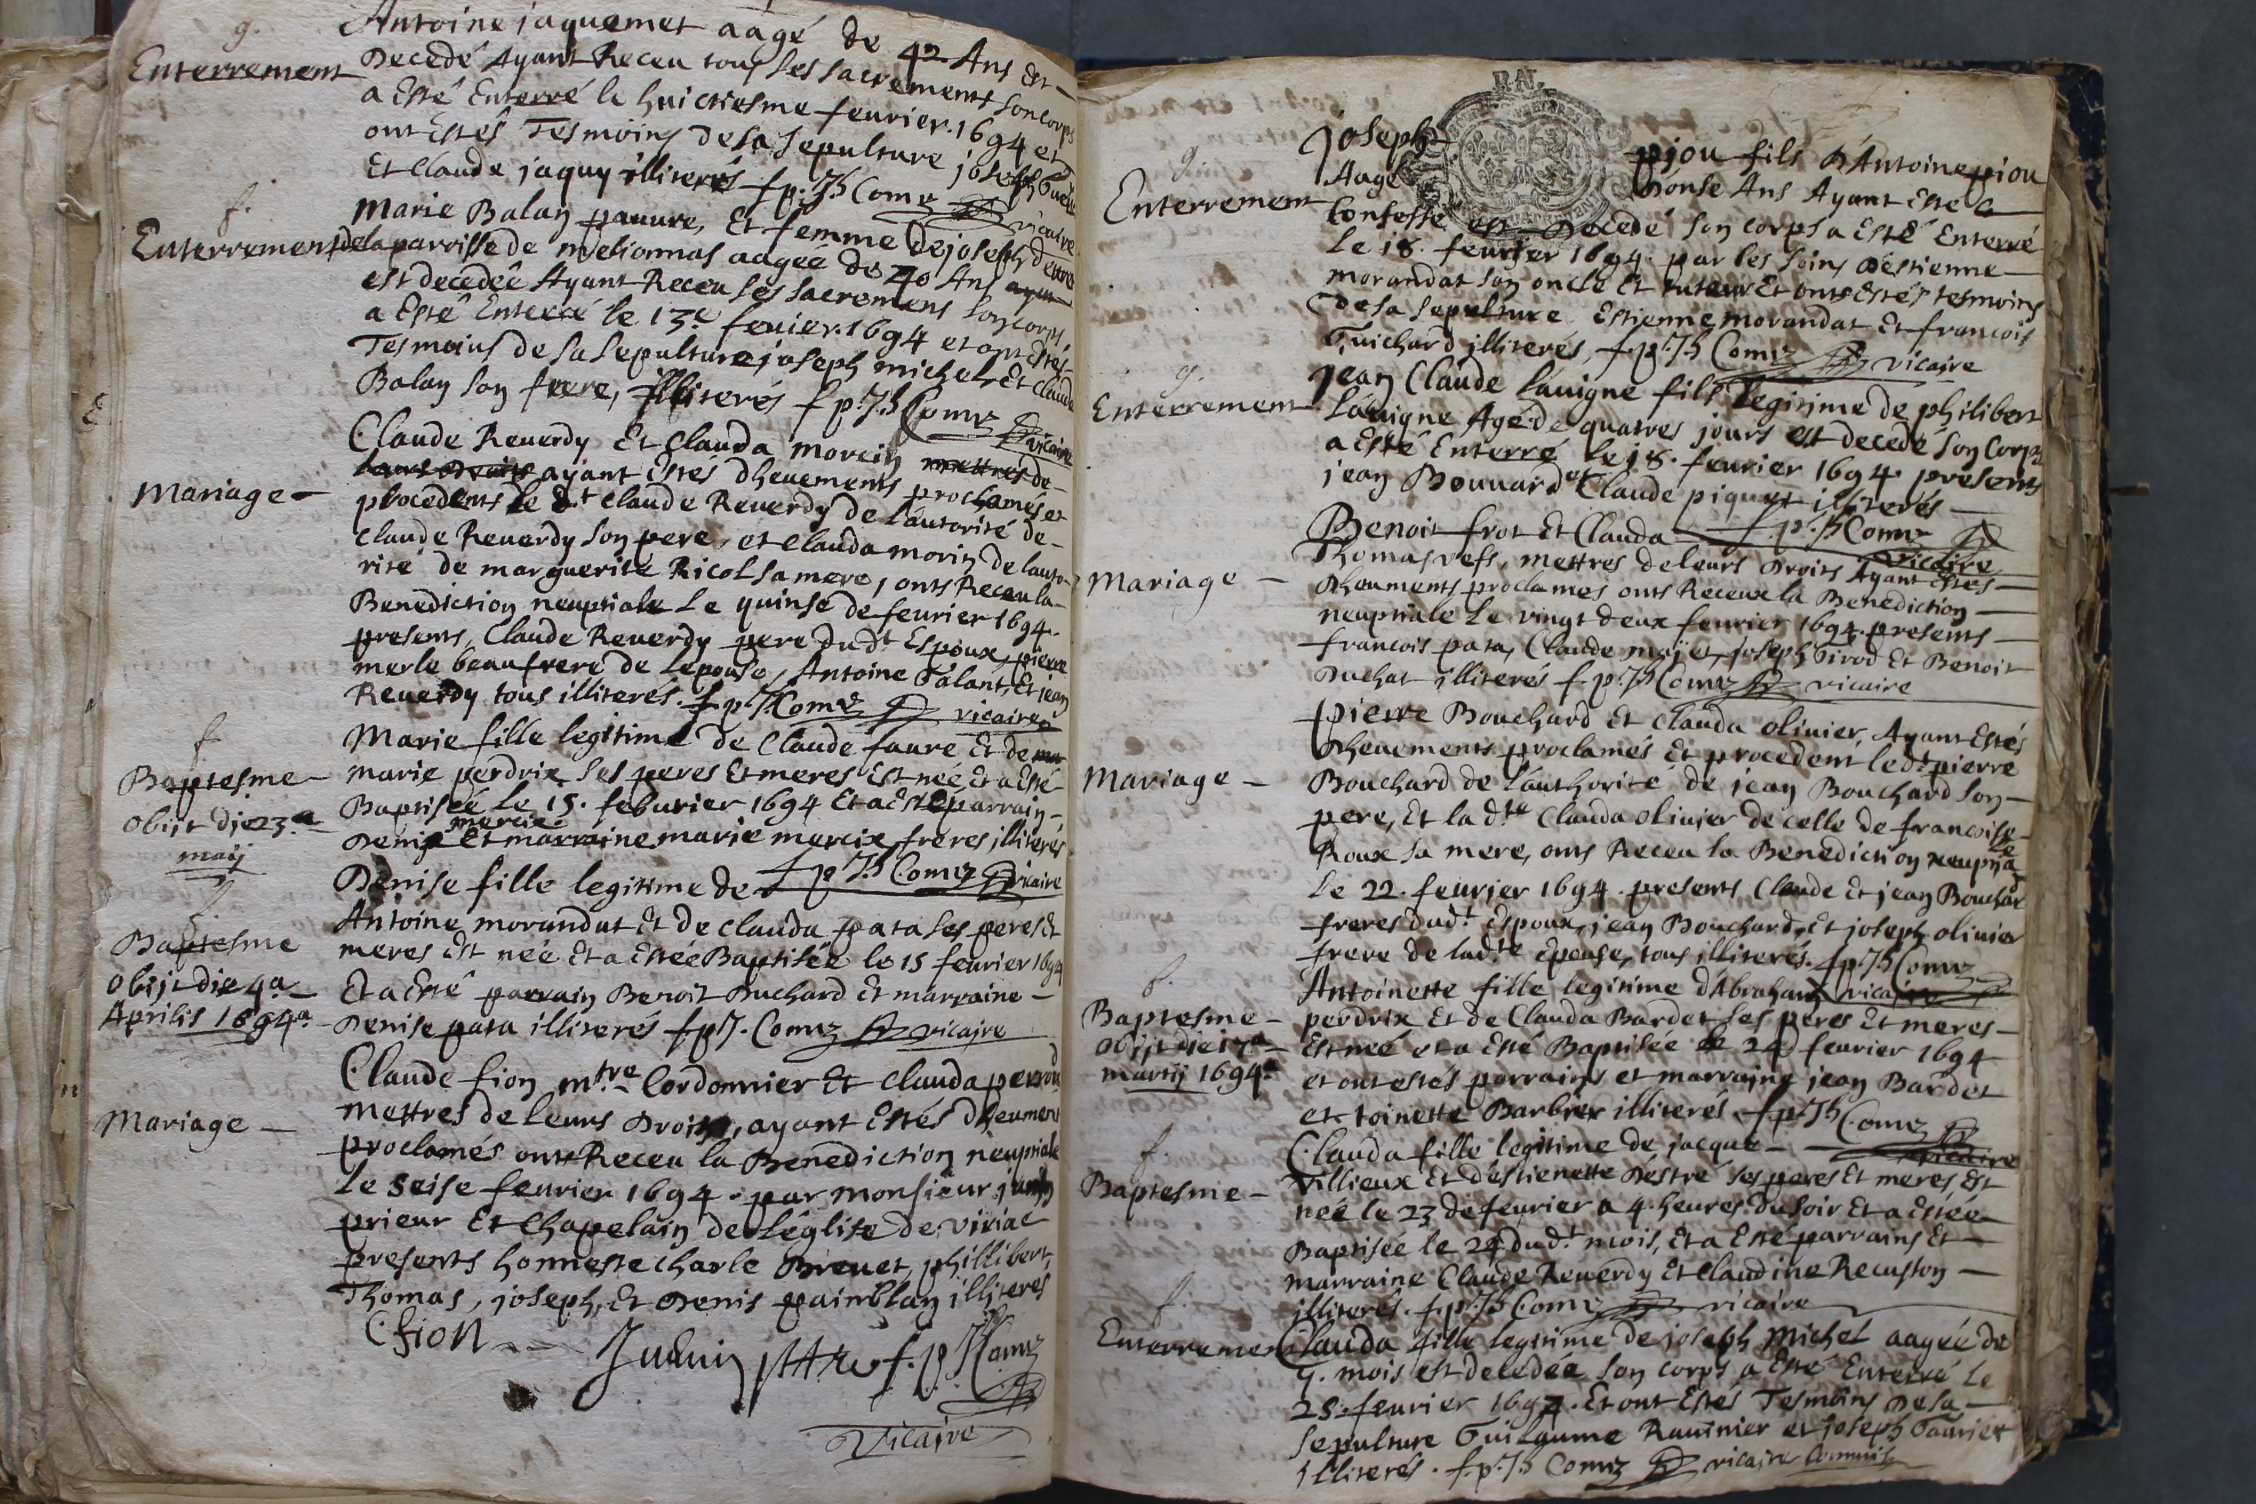 g.
Enterrement
Antoine jaquemet aagé de 42 Ans Est
Decedé Ayant Receu tous ses sacrements son corps
a Esté Enterré le huictiesme feurier. 1694 et
ont Estés Tesmoins De sa sepulture joseph
Et Claude jaquy illiterés f. p. Jh Comz vicaire
f.
Enterrement
Marie Balay pauure, Et femme de joseph
de la paroisse de melionnas aagée de 40 Ans
est decedeé Ayant Receu ses sacremens son corps
a Esté Enterré le 13e feurier. 1694 et ont Estés
Tesmoins de sa sepulture joseph michel, Et Claude
Balay son frere, illiterés f p. Jh Comz vicaire
Mariage
Claude Reuerdy Et Clauda morein mettres de
leurs Droits ayant Estés dheuements proclamés et
procedents le d.t Claude Reuerdy de l'autorité de
Claude Reuerdy son pere, et Clauda morin de lauto
rité de marguerite Ricol sa mere, onts Receu la
Benediction neuptiale Le quinse de feurier 1694.
presents, Claude Reuerdy pere dud.t Espoux, pierre
merle beaufrere de Lepouse, Antoine Talant, Et jean
Reuerdy tous illiterés. f. p. J. Comz vicaire
f
Baptesme
obijt die 23a
maij
Marie fille legitime de Claude faure Et de
marie perdrix ses peres Et meres Est née Et a Esté
Baptiseé Le 15. feburier 1694 Et a Esté parrain
mercix
Denis Et marraine marie mercix freres illiterés
f p Jh Comz vicaire
f
Baptesme
Obijt die 4a
Aprilis 1694a
Denise fille legitime de
Antoine morandat Et de Clauda pata ses peres Et
meres Est née Et a Estée Baptisée le 15 feurier 1694
Et a Esté parrain Benoit Buchard Et marraine
Denise pata illiterés f p J. Comz vicaire
Mariage
Claude fion mtre Cordonnier Et Clauda
mettres de leurs Droits, ayant Estés dheument
proclamés onts Receu la Benediction neuptiale
Le seise feurier 1694. par monsieur
prieur Et Chapelain de Léglise de viriac
presents honneste Charle Breuet, phillibert
Thomas, joseph, Et Denis painblan illiterés
C fion
f. p Jh Comz
Vicaire
g.
Enterrement
joseph pjou fils D'Antoine piou
Aagé Donse Ans Ayant Esté
Confessé est Decedé son corps a Esté Enterré
Le 18. feurier 1694. par les soins d'estienne
morandat son oncle Et tuteur Et onts Estés tesmoins
de sa sepulture Estienne morandat Et francois
Guichard illiterés, f. p. Jh Comz vicaire
g.
Enterrement
jean Claude Lauigne fils Legitime de philibert
Lauigne Agé de quatres jours est decedé son Corps
a Esté Enterré Le 18. feurier 1694 presents
jean Bouuard et Claude piquet illiterés
f. p. Jh Comz
vicaire
Mariage
Benoit frot Et Clauda
Thomas vefs, mettres de leurs Droits Ayant Estés
Dheuments proclamés onts Receu la Benediction
neuptiale Le vingt deux feurier 1694. presents
francois pata, Claude majet, joseph Girod Et Benoit
Duchat illiterés f. p. Jh Comz vicaire
Mariage
pierre Bouchard Et Clauda oliuier Ayant Estés
Dheuements proclamés Et procedent led.t pierre
Bouchard de L'authorité de jean Bouchard son
pere, Et la d.te Clauda oliuier de celle de francoise
Roux sa mere, onts Receu la Benediction
Le 22. feurier 1694. presents Claude Et jean Bouchar
freres dud.t Espoux, jean Bouchard, Et joseph oliuier
frere de lad.te Epouse, tous illiterés. f. p. Jh Comz
vicaire
f.
Baptesme
Obijt die 17a
martij 1694a
Antoinette fille legitime d'Abraham
perdrix Et de Clauda Bardet ses peres Et meres
Est neé et a Esté Baptisée le 24 feurier 1694
et ont estés parrains et marraine jean Bardet
et toinette Barbier illiterés f p. Jh Comz
vicaire
f.
Baptesme
Clauda fille legitime de jacque
Villieux Et d'estienette Destre ses peres Et meres Est
née le 23 de feurier a 4. heures du soir Et a Estée
Baptisée le 24 dud.t mois, Et a Esté parrains Et
marraine Claude Reuerdy Et Claudine Recuston
illiterés. f. p. Jh Comz vicaire
f.
Enterrement
Clauda fille legitime de joseph Michel aagée de
9. mois est decedée son corps a Esté Enterré Le
25. feurier 1694. Et ont Estés Tesmoins De sa
sepulture Guilaume Rauinier et joseph
illiterés. f. p. Jh Comz vicaire commis